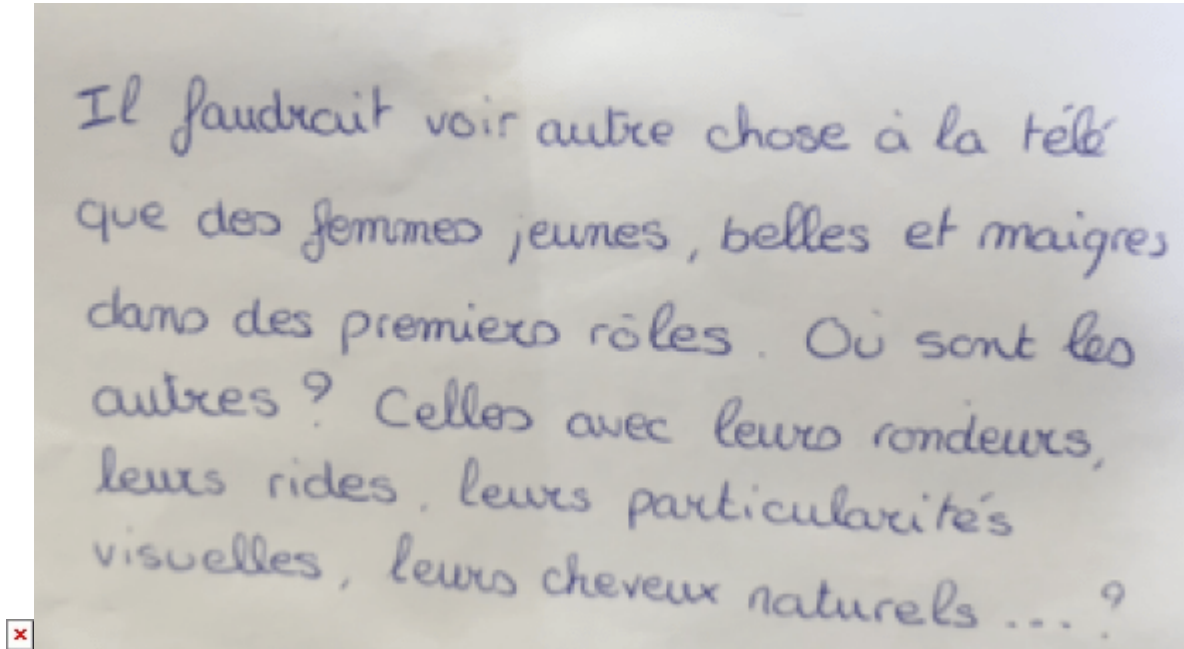 Il faudrait voir autre chose à la télé
que des femmes jeunes, belles et maigres
dans des premiers rôles. Où sont les
autres ? Celles avec leurs rondeurs,
leurs rides, leurs particularités
visuelles, leurs cheveux naturels .... ?